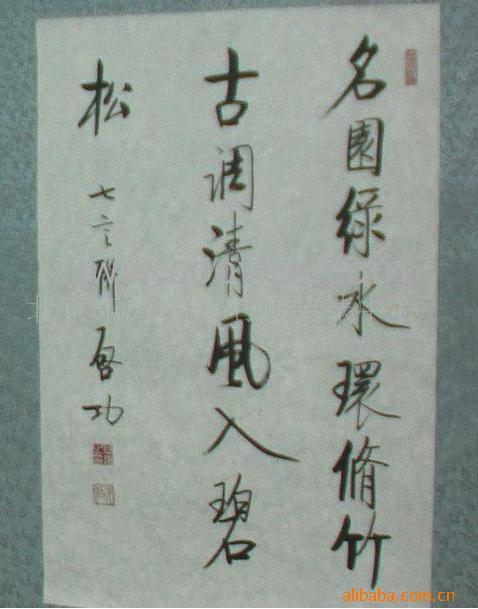 名園綠水環脩竹
古調清風入碧
松
七言聯 啓功
alibaba.com.cn